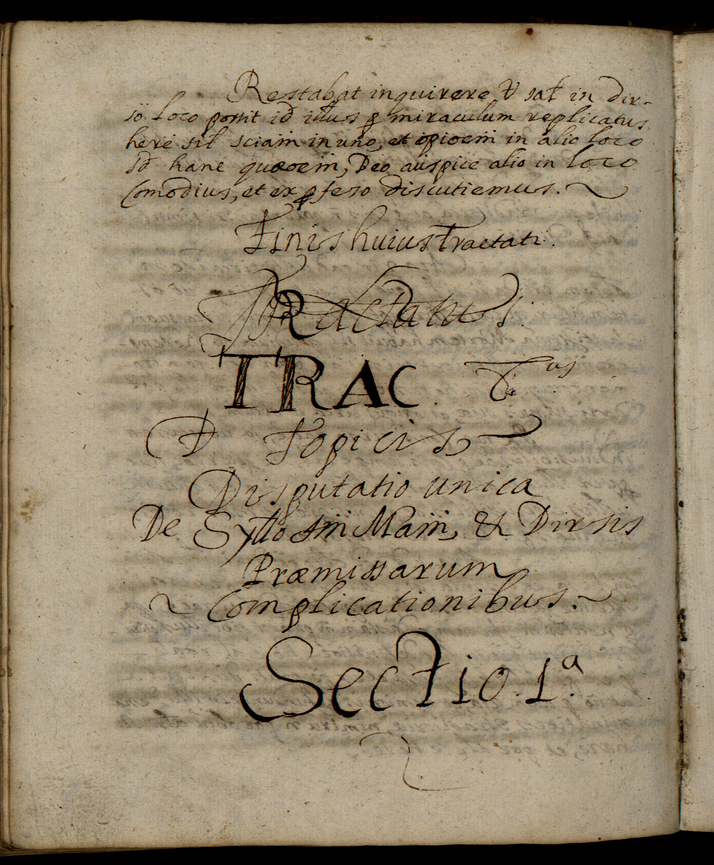 Restabat inquirere V sat in dir-
so loco possit id ipsus p miraculum replicatus
here sit sciam in uno, et opioem in alio loco
sd hanc quæoem, Deo auspice alio in loco
Comodius, et ex pfeso discutiemus.
Finis huius Tractati.
Tractatus.
TRAC. us
D Topicis
Disputatio unica
De Syllo Mam, & Dirsis
Præmissarum
Complicationibus.
Sectio. 1.a